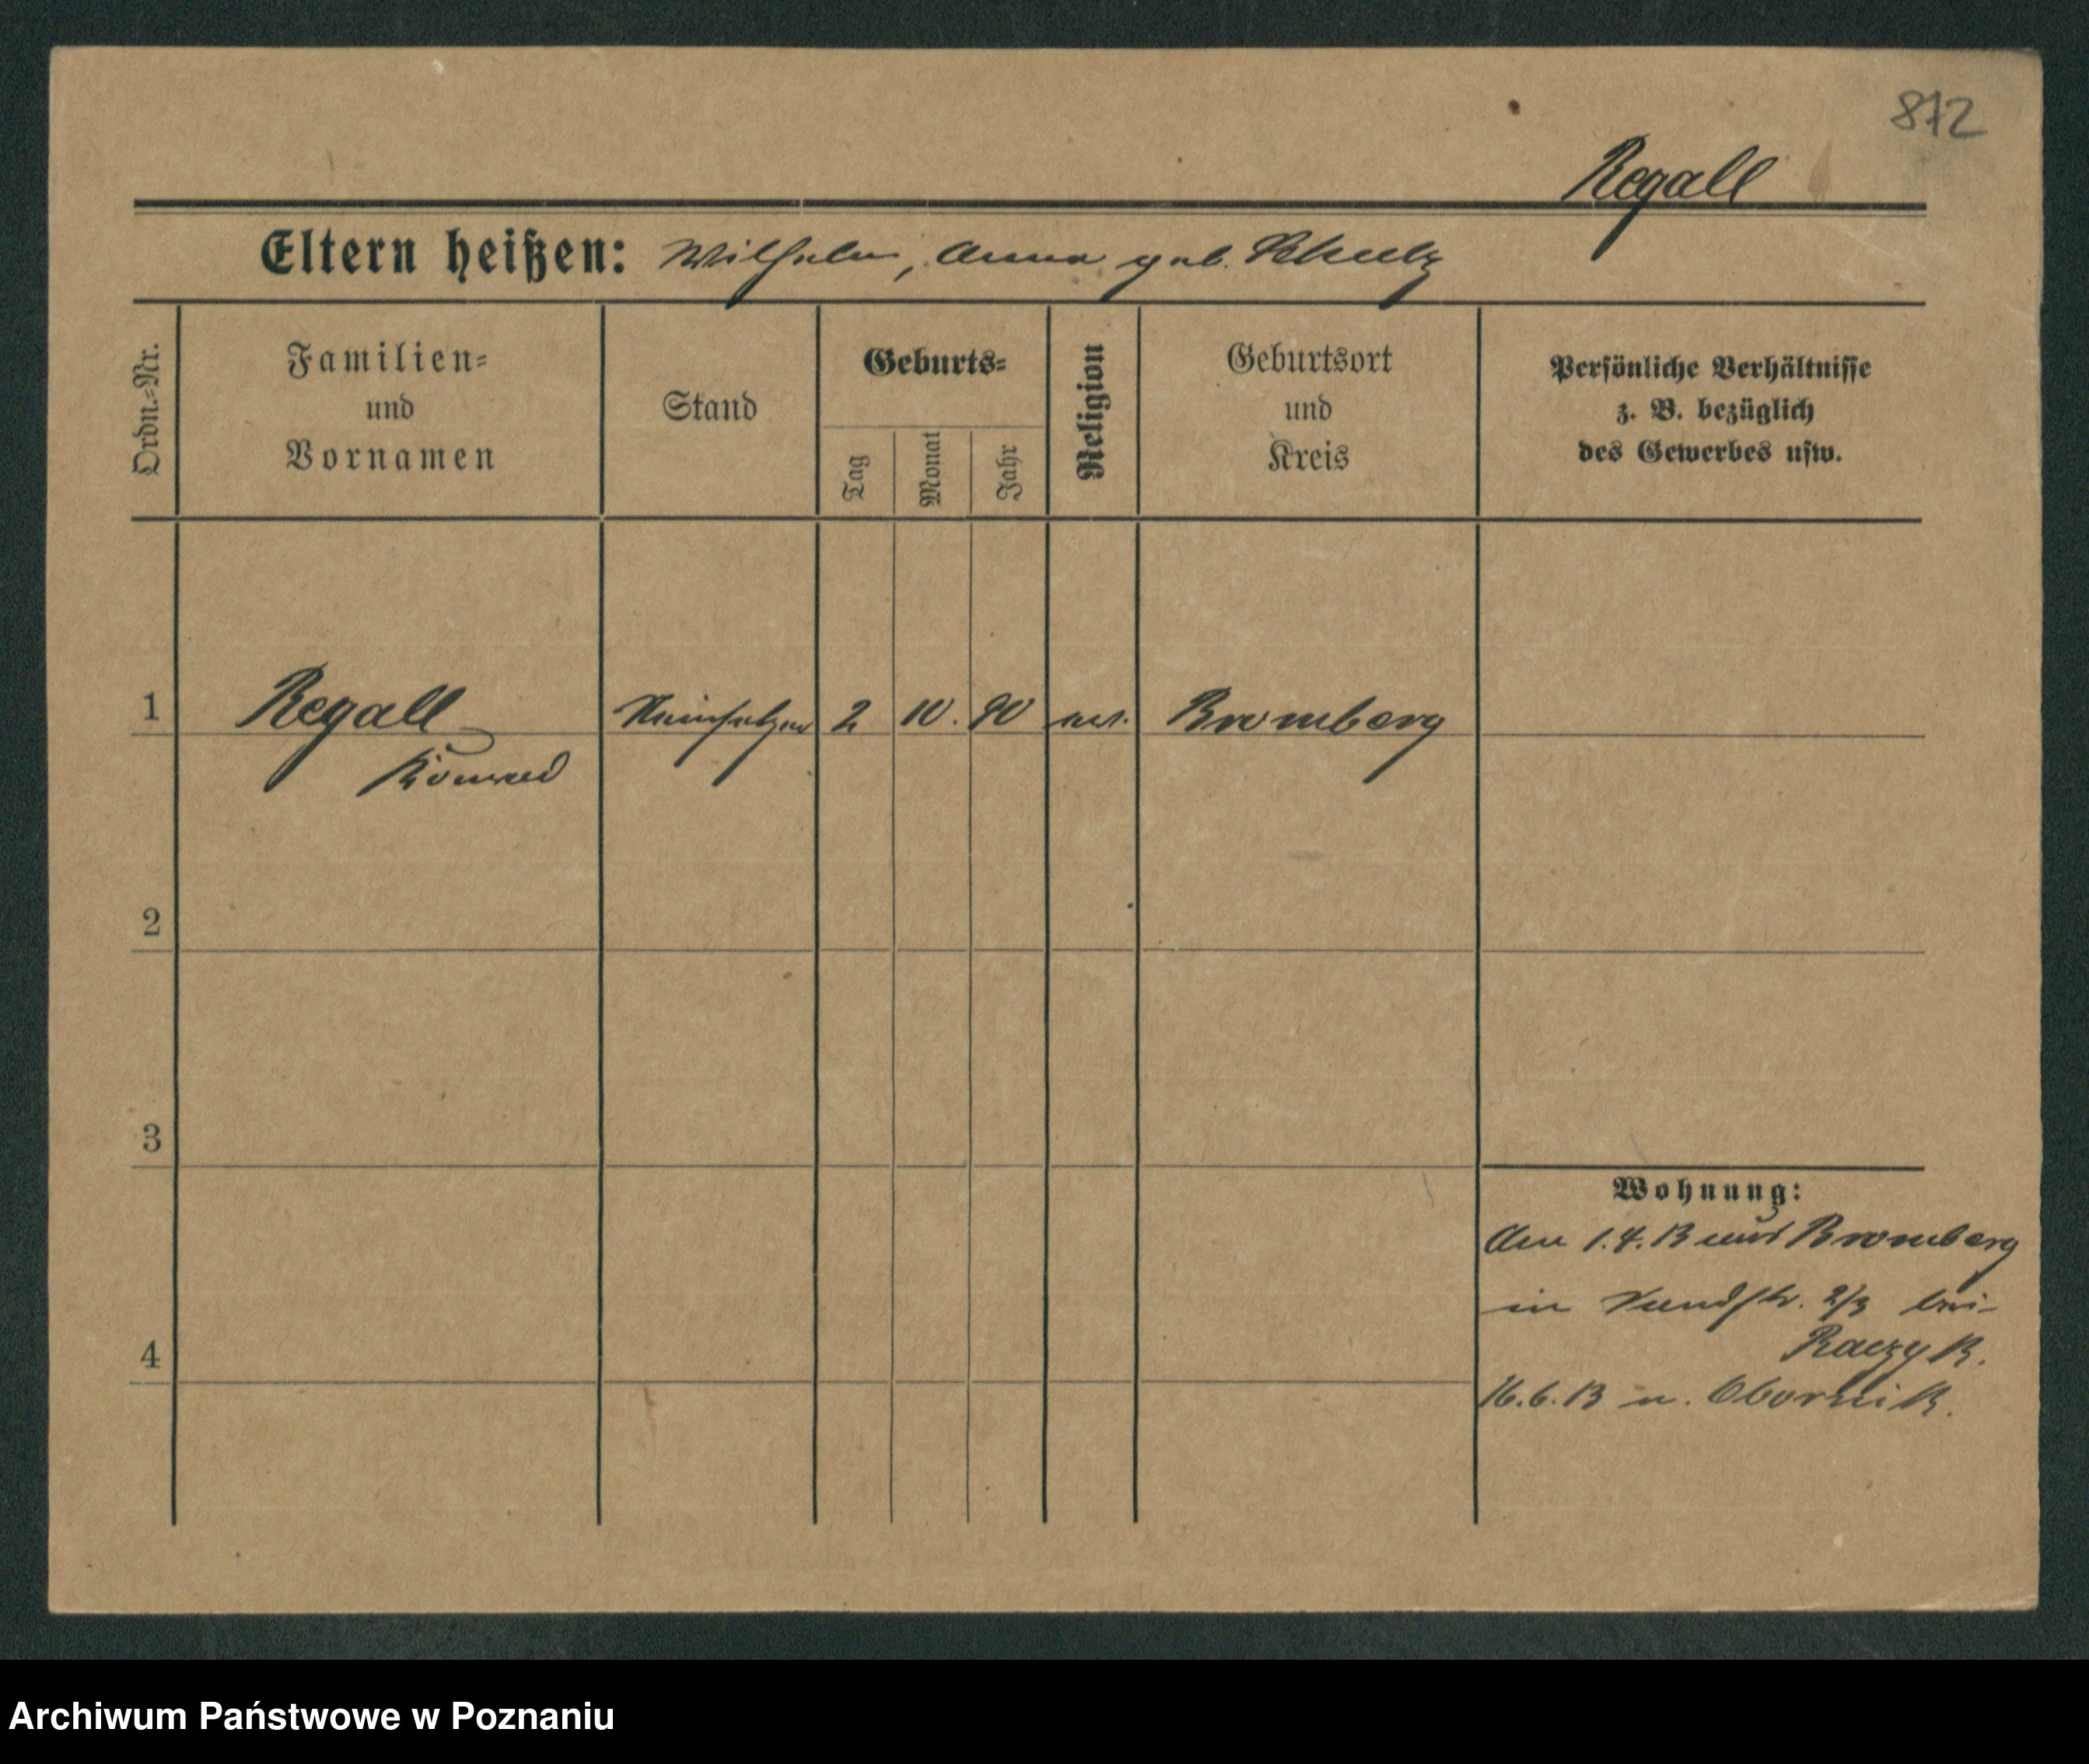 872
Regall
Eltern heißen: Wilhelm, Anna geb. Schulz
Ordn.-Nr.
Familien-
und
Vornamen
Stand
Geburts-
Tag
Monat
Jahr
Religion
Geburtsort
und
Kreis
Persönliche Verhältnisse
z. B. bezüglich
des Gewerbes usw.
1 Regall Steinsetzer 2 10. 90 ev. Bromberg
Konrad
2
3
4
Wohnung:
Am 1.4.13 aus Bromberg
in 2/3 bei
Raczyk.
16.6.13 n. Obornik.